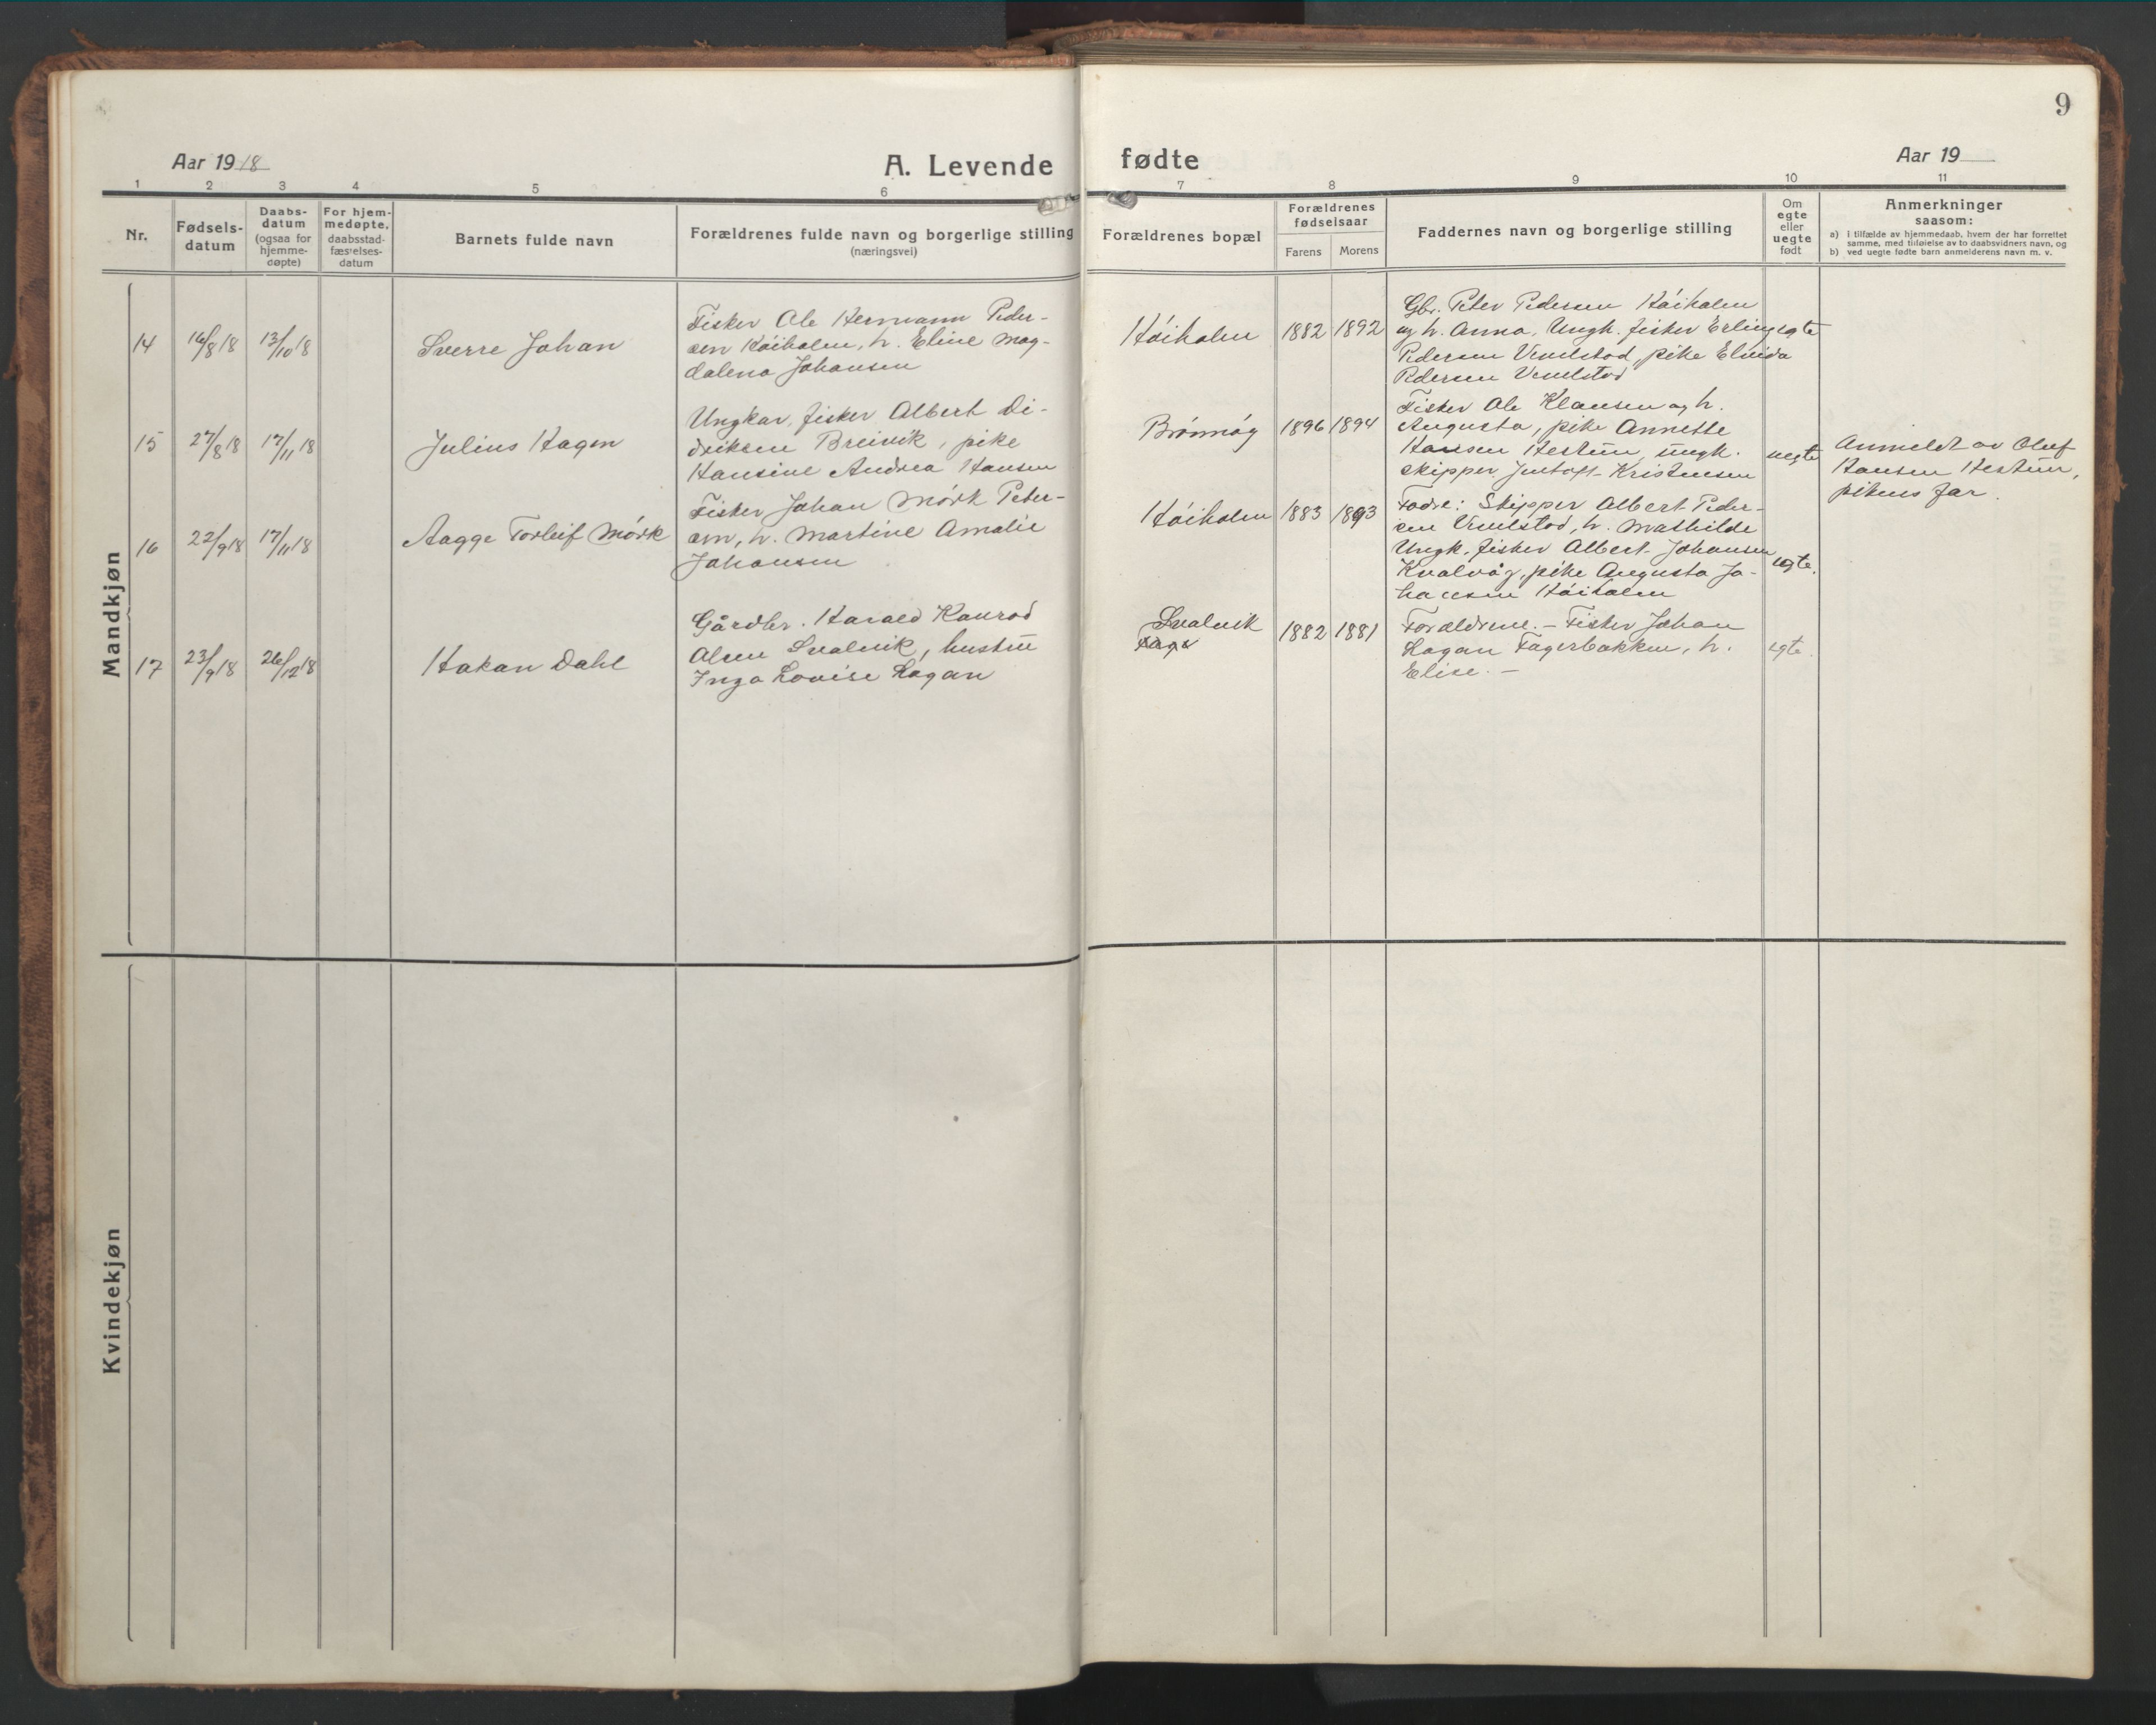 9
Aar 1918
A. Levende fødte
Aar 19
1 2 3 4 5 6 7 8 9 10 11
Nr.
Fødsels-
datum
Daabs-
datum
(ogsaa for
hjemme-
døpte)
For hjem-
medøpte,
daabsstad-
fæstelses-
datum
Barnets fulde navn
Forældrenes fulde navn og borgerlige stilling
(næringsvei)
Forældrenes bopæl
Forældrenes
fødselsaar
Farens Morens
Faddernes navn og borgerlige stilling
Om
egte
eller
uegte
født
Anmerkninger
saasom:
a) i tilfælde av hjemmedaab, hvem der har forrettet
samme, med tilføielse av to daabsvidners navn, og
b) ved uegte fødte barn anmelderens navn m. v.
Mandkjøn
14
16/8 18
13/10 18
Sverre Johan
Fisker Ole Hermann Peder-
sen Høiholm, h. Eline Mag-
dalena Johansen
Høiholm
1882 1892
Gbr. Peter Pedersen Høiholm
og h. Anna, Ungk. fisker Erling
Pedersen Vemelstad, pike Elvida
Pedersen Vemelstad
egte
15
27/8 18
17/11 18
Julius Hagen
Ungkar, fisker Albert Di-
driksen Breivik, pike
Hansine Andrea Hansen
Brønnøy
1896 1894
Fisker Ole Klausen og h.
Augusta, pike Annette
Hansen Hestun, ungk.
skipper Kristensen
uegte
Anmeldt av Oluf
Hansen Hestun,
pikens far.
16
22/9 18
17/11 18
Aagge Torleif Mørk
Fisker Johan Mørk Peter-
sen, h. Martine Amalie
Johansen
Høiholm
1883 1893
Fadre: Skipper Albert Peder-
sen Vemelstad, h. Mathilde
Ungk. fisker Albert Johansen
Kvalvåg, pike Augusta Jo-
hansen Høiholm
egte.
17
23/9 18
26/12 18
Hakan Dahl
Gårdbr. Harald Konrad
Olsen Svalvik, hustru
Inga Lovise Hagan
Svalvik
1882 1881
Forældrene. - Fisker Johan
Hagan Fagerbakken, h.
Elise. -
egte.
Kvindekjøn